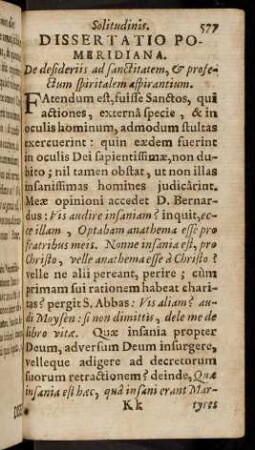 Solitudinis. 577
DISSERTATIO PO-
MERIDIANA.
De desideriis ad sanctitatem, & profe-
ctum spiritalem aspirantium.
FAtendum est, fuisse Sanctos, qui
actiones, externâ specie, & in
oculis hominum, admodum stultas
exercuerint: quin eædem fuerint
in oculis Dei sapientissimæ, non du-
bito; nil tamen obstat, ut non illas
insanissimas homines judicârint.
Meæ opinioni accedet D. Bernar-
dus: Vis audire insaniam? inquit, ec-
ce illam, Optabam anathema esse pro
fratribus meis. Nonne insania est, pro
Christo, velle anathema esse à Christo?
velle ne alii pereant, perire; cùm
primam sui rationem habeat chari-
tas? pergit S. Abbas: Vis aliam? au-
di Moysèn: si non dimittis, dele me de
libro vitæ. Quæ insania propter
Deum, adversum Deum insurgere,
velleque adigere ad decretorum
suorum retractionem? deinde, Quæ
insania est hæc, quâ insani erant Mar-
Kk tyres